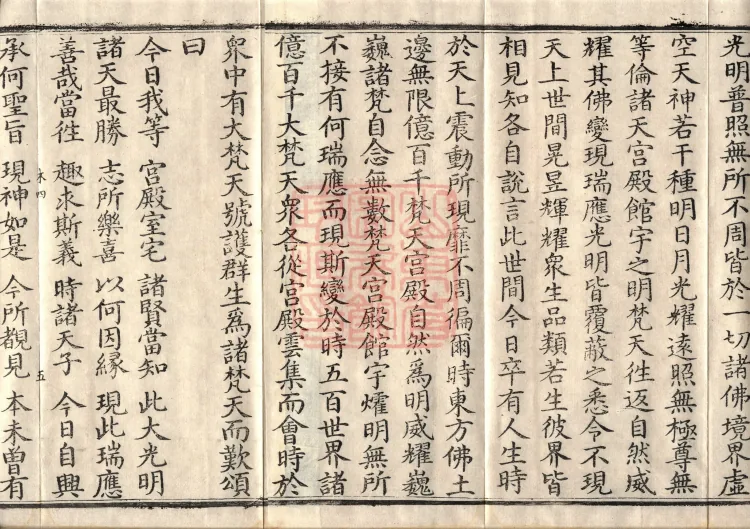 光明普照無所不周皆於一切諸佛境界虛
空天神若干種明日月光耀遠照無極尊無
等倫諸天宮殿館宇之明梵天徃返自然威
耀其佛變現瑞應光明皆覆蔽之悉令不現
天上世間晃昱輝耀衆生品類若生彼界皆
相見知各自說言此世間今日卒有人生時
於天上震動所現靡不周徧爾時東方佛土
邊無限億百千梵天宮殿自然為明威耀巍
巍諸梵自念無數梵天宮殿館宇燿明無所
不接有何瑞應而現斯變於時五百世界諸
億百千大梵天衆各從宮殿雲集而會時於
衆中有大梵天號護群生爲諸梵天而歎頌
曰
今日我等 宮殿室宅 諸賢當知 此大光明
諸天最勝 志所樂喜 以何因緣 現此瑞應
善哉當徃 趣求斯義 時諸天子 今日自興
承何聖旨 現神如是 今所覩見 本未曽有